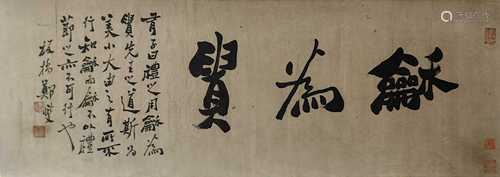 龢為貴
有子曰禮之用龢為
貴先王之道斯為
美小大由之有所不
行知龢而龢不以禮
節之亦不可行也
板橋鄭燮